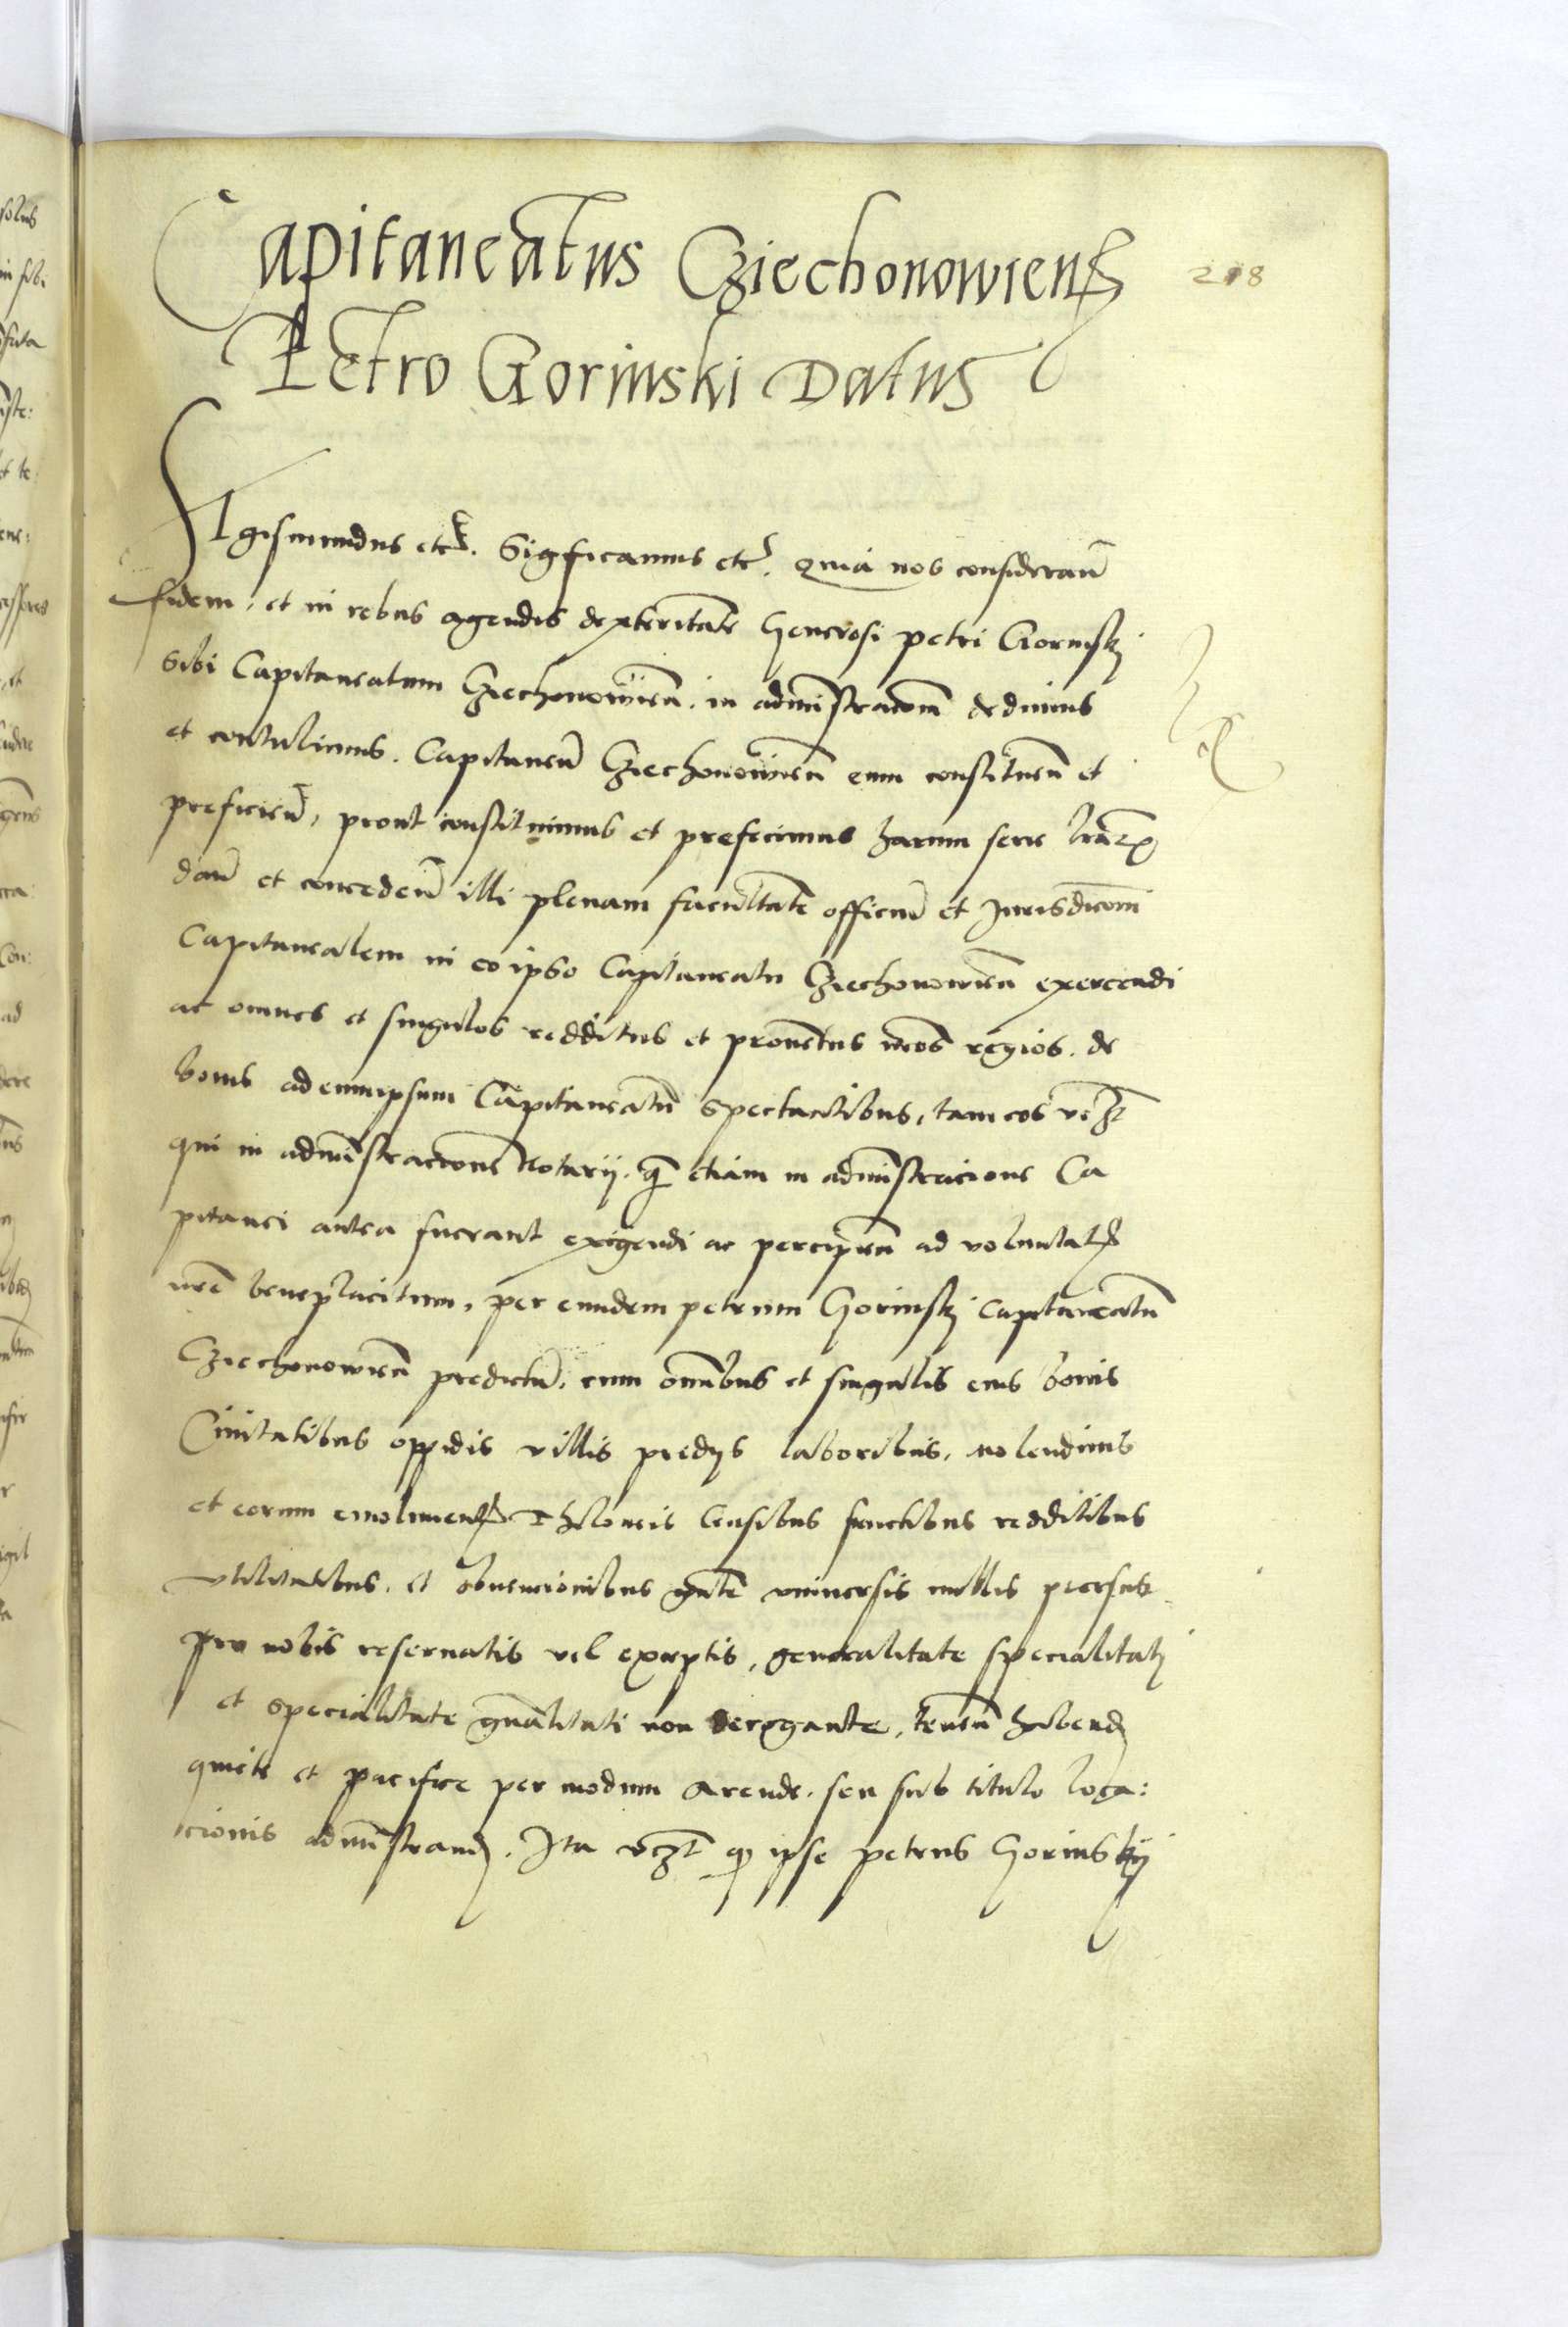 Capitaneatus Cziechonowiens̄
Petro Gorinski Datus
218
Sigismundus etc̄. Sigficamus etc̄. Quia nos considerañ
fidem, et in rebus agendis dexteritatē Generosi petri Gorinskj
Sibi Capitaneatum Cziechonowieñ. in admīstracōm dedimus
et contulimus. Capitaneū Cziechonowieñ eum constitueñ et
preficieñ, prout constituimus et prefecimus harum serie lrāꝝ
dañ et concedeñ illi plenam facultatē officiū et Jurisdicōm
Capitanealem in eo ipso Capitaneatu Cziechonowieñ exercendi
ac omnes et singulos redditus et proventus nr̄os regios. de
bonis ad eum ipsum Capitaneatū spectantibus, tam eos vcz̄t
qui in admīstracione Notarij. q̄ etiam in admīstracione Ca
pitanei antea fuerant exigendi ac percipieñ ad voluntatꝭ
nr̄e beneplacitum, per eundem petrum Gorinskj capitaneatū
Cziechonowieñ predictū, cum om̄ibus et singulis eius bonis
Civitatibus oppidis villis predijs laboribus, molendinis
et eorum emolumentꝭ Theloneis Censibus fructibus redditibus
vtilitatibus, et obvencionibus gn̄te vniversis nullis prorsus
pro nobis reservatis vel exceptis, generalitate specialitatj
et specialitate gn̄alitati non derogante, teneñ habend
quiete et pacifice per modum Arende. seu sub titulo loca:
cionis admīstrand. Ita vcz̄t q̄ ipse petrus Gorinskij